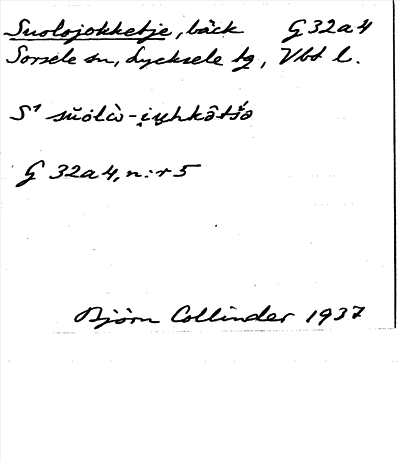 Suolojokketje, bäck G 32a4
Sorsele sn, Lycksele tg, Vbt l.
S¹ sŭolɑ̀-i̯ųhkȏtšə
G 32a4, n:r 5
Björn Collinder 1937